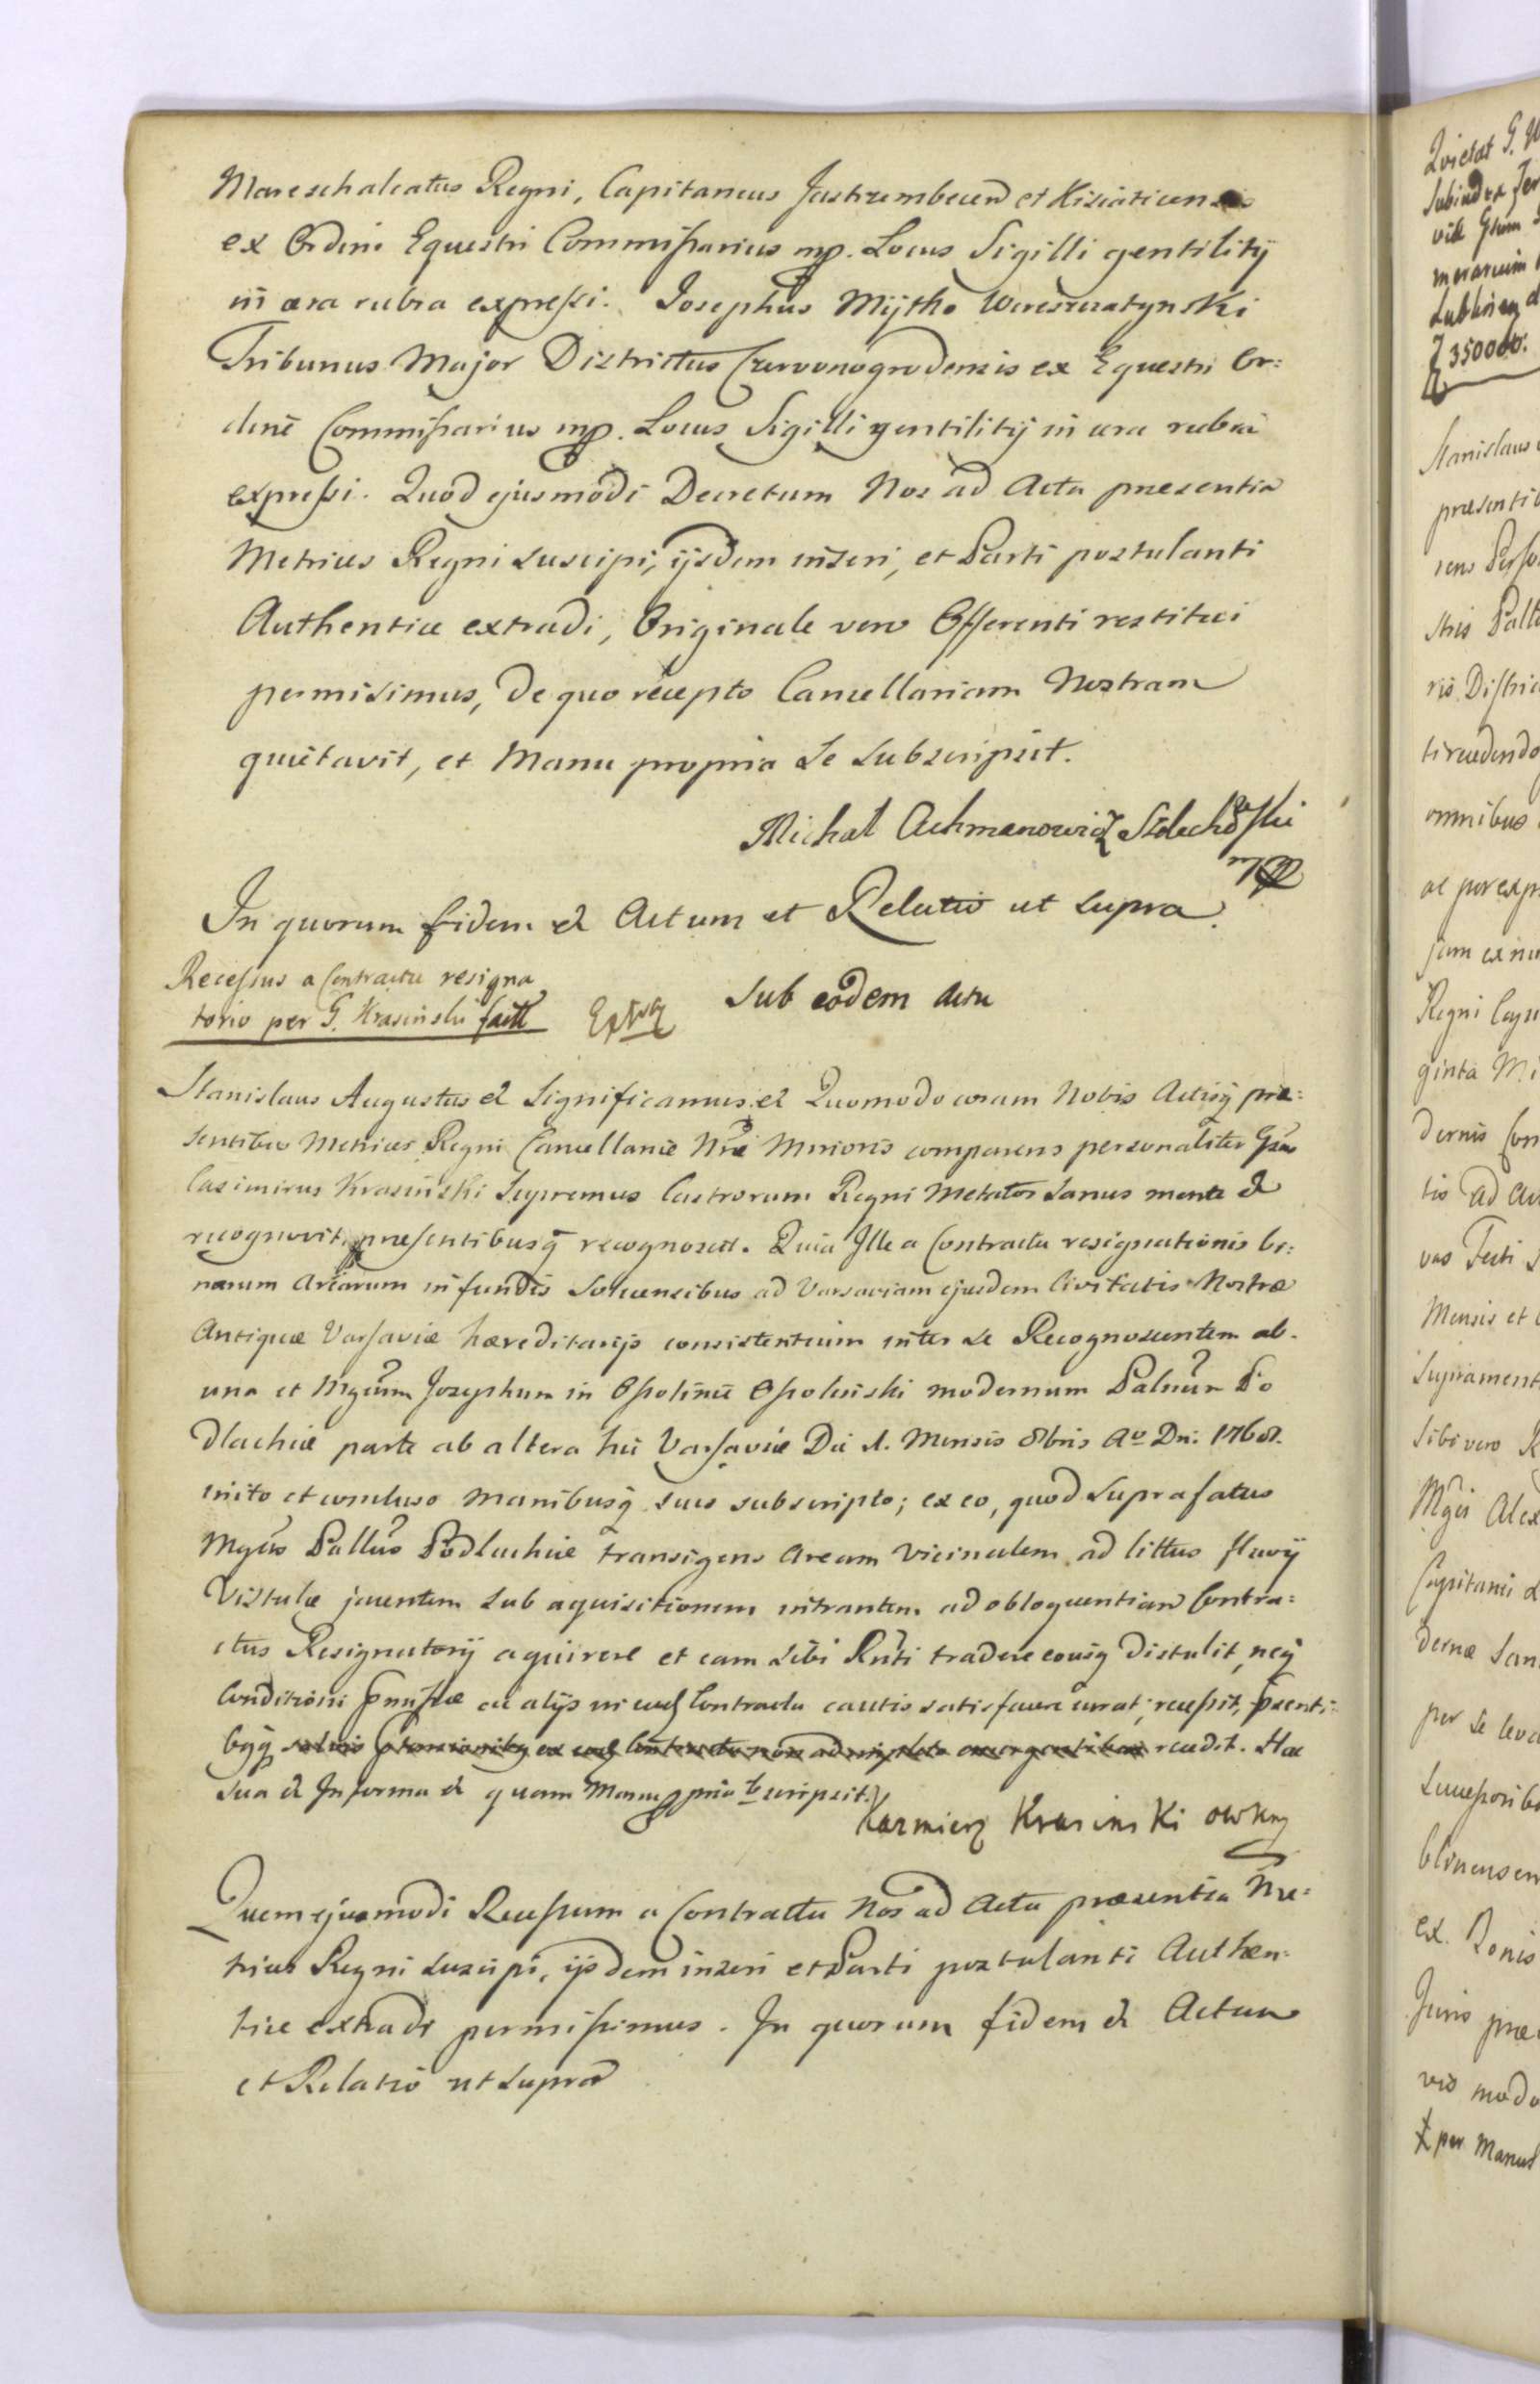 Mareschalcatus Regni, Capitaneus Jastrzembecen et Kisiaticensis
ex Ordine Equestri Commissarius mp. Locus Sigilli gentilitij
in cera rubra expressi. Josephus Mytko Wereszczatynski
Tribunus Major Districtus Czerwonogrodensis ex Equestri Or:
dine Commissarius mp. Locus Sigilli gentilitij in cera rubra
expressi. Quod ejusmodi Decretum Nos ad Acta praesentia
Metrices Regni suscipi, ijsdem inseri, et Parti postulanti
Authentice extradi, Originale vero Offerenti restitui
permisimus, de quo recepto Cancellariam Nostram
quietavit, et Manu propria se subscripsit.
Michał Achmanowicz
mp
In quorum fidem et Actum et Relatio ut supra.
Recessus a Contractu resigna
torio per G. Krasinski factt
Sub eodem actu
Stanislaus Augustus et Significamus et Quomodo coram Nobis Actisq prae:
sentibus Metrices Regni Cancellariae Nrae Minoris comparens personaliter Gsus
Casimirus Krasinski Supremus Castrorum Regni Metator sanus mente et
recognovit, praesentibusq recognoscit. Quia Ille a Contractu resignationis bi:
narum Arearum in fundis Solecensibus ad Varsaviam ejusdem Civitatis Nostrae
Antiquae Varsaviae haereditarijs consistentium inter se Recognoscentem ab
una et Mgcum Josephum in Opolinie Opolinski modernum Palnum Po
dlachiae parte ab altera hic Varsaviae Die 1. Mensis 8bris Ao Dni 1768.
inito et concluso Manibusq suis subscripto; ex eo, quod suprafatus
Mgcus Pallus Podlachiae transigens Aream vicinalem ad littus fluvij
Vistulae jacentem sub aquisitionem intrantem ad obloquentiam Contra:
ctus Resignatorij aquirere et eam sibi Rnti tradere eousq distulit, neq
Conditioni pmissae ac alijs in eod Contractu cautis satisfacere curat, recessit, psenti:
bqq salvis ex eod Contractu non adimpleto emergentibus recedit. Hac
sua et In forma et quam Manu ppria bscripsit.
Kazmierz Krasinski OWKny
Quem ejusmodi Recessum a Contractu Nos ad Acta praesentia Me:
trices Regni suscipi, ijsdem inseri et Parti postulanti Authen:
tice extradi permisimus. In quorum fidem et Actum
et Relatio ut supra
Quietat G.
vill Gsum
350000.
Stanislaus
praesentib
omnibus
Regni Capi
ginta Mi
Mensis et
sibi vero
Mgci Alex
Capitanei
dernae
per se
blinensem
vio modo
per Manus